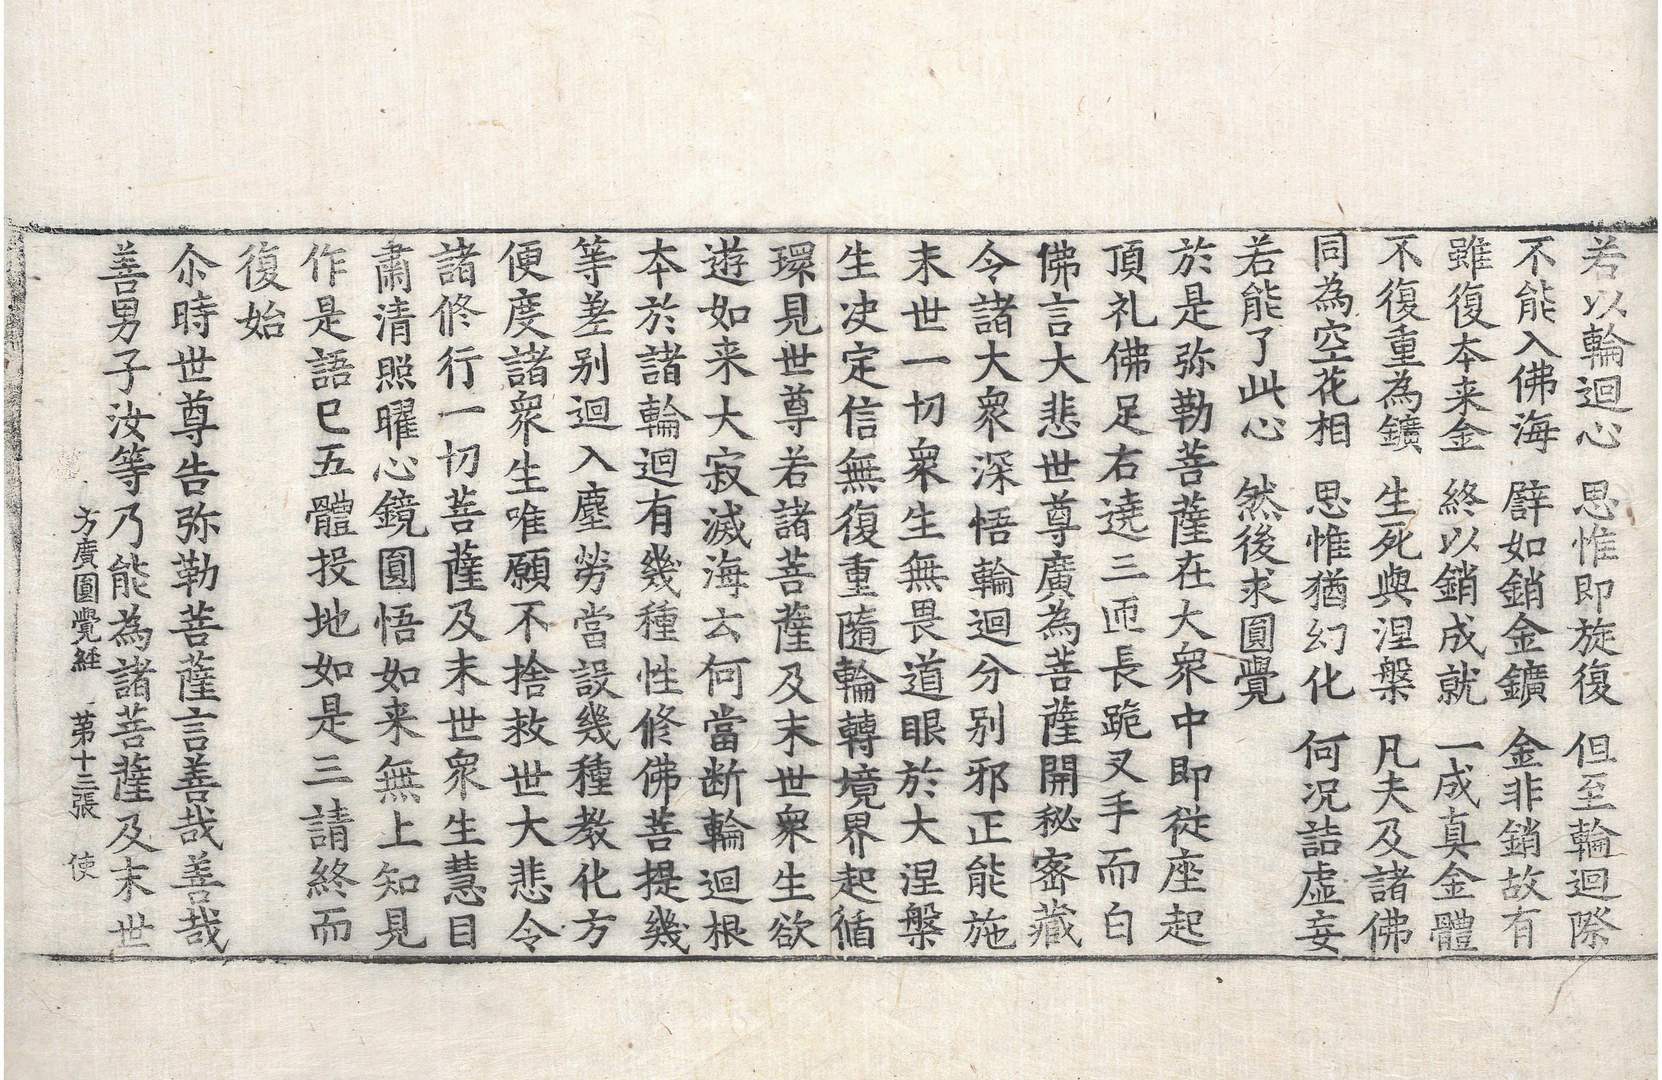 若以輪迴心　思惟即旋復　但至輪迴際
不能入佛海　譬如銷金鑛　金非銷故有
雖復本来金　終以銷成就　一成真金體
不復重為鑛　生死與涅槃　凡夫及諸佛
同為空花相　思惟猶幻化　何况詰虛妄
若能了此心　然後求圓覺
於是弥勒菩薩在大衆中即從座起
頂礼佛足右遶三匝長跪叉手而白
佛言大悲世尊廣為菩薩開秘密藏
令諸大衆深悟輪迴分别邪正能施
末世一切衆生無畏道眼於大涅槃
生决定信無復重隨輪轉境界起循
環見世尊若諸菩薩及末世衆生欲
遊如来大寂滅海云何當断輪迴根
本於諸輪迴有幾種性修佛菩提幾
等差别迴入塵勞當設幾種教化方
便度諸衆生唯願不捨救世大悲令
諸修行一切菩薩及末世衆生慧目
肅清照曜心鏡圓悟如来無上知見
作是語已五體投地如是三請終而
復始
尒時世尊告弥勒菩薩言善哉善哉
善男子汝等乃能為諸菩薩及末世
方廣圓覺経　第十三張　使